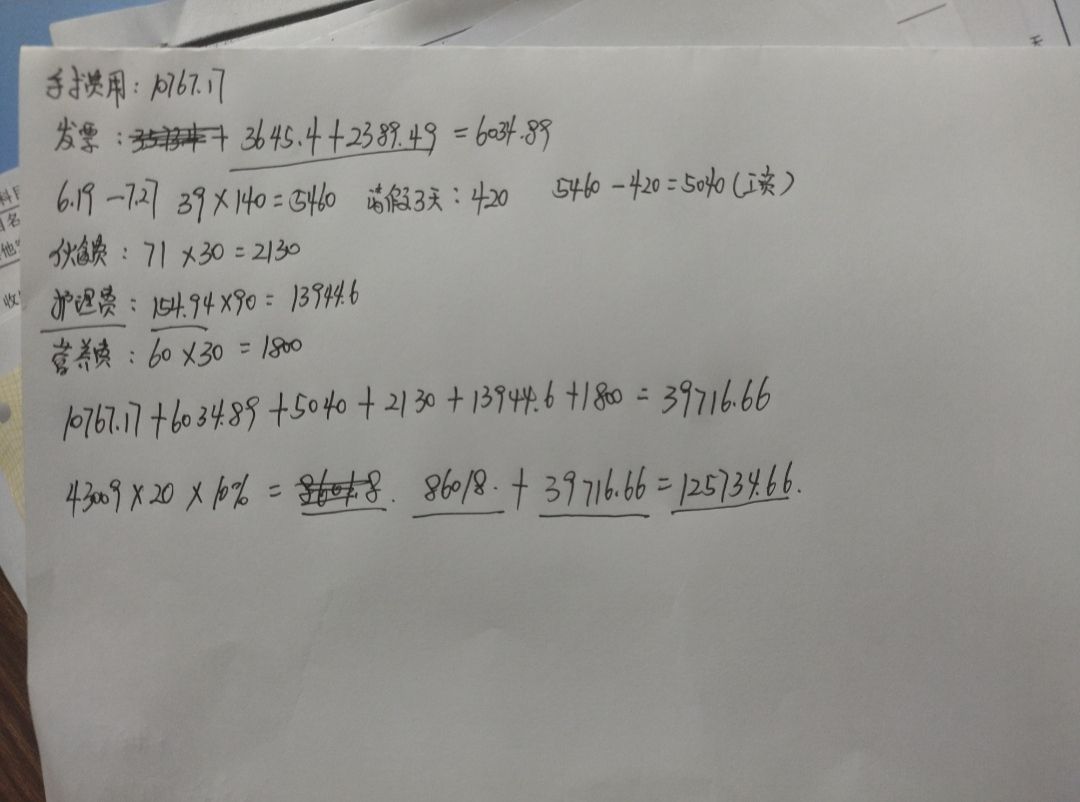 手术费用：10767.17
发票： 3645.4+2389.49 =6034.89
6.19-7.27 39×140=5460 请假3天：420 5460-420=5040(工资)
伙食费：71×30=2130
护理费：154.94×90=13944.6
营养费：60×30=1800
10767.17+6034.89+5040+2130+13944.6+1800=39716.66
43009×20×10%= 86018.+39716.66=125734.66.
天